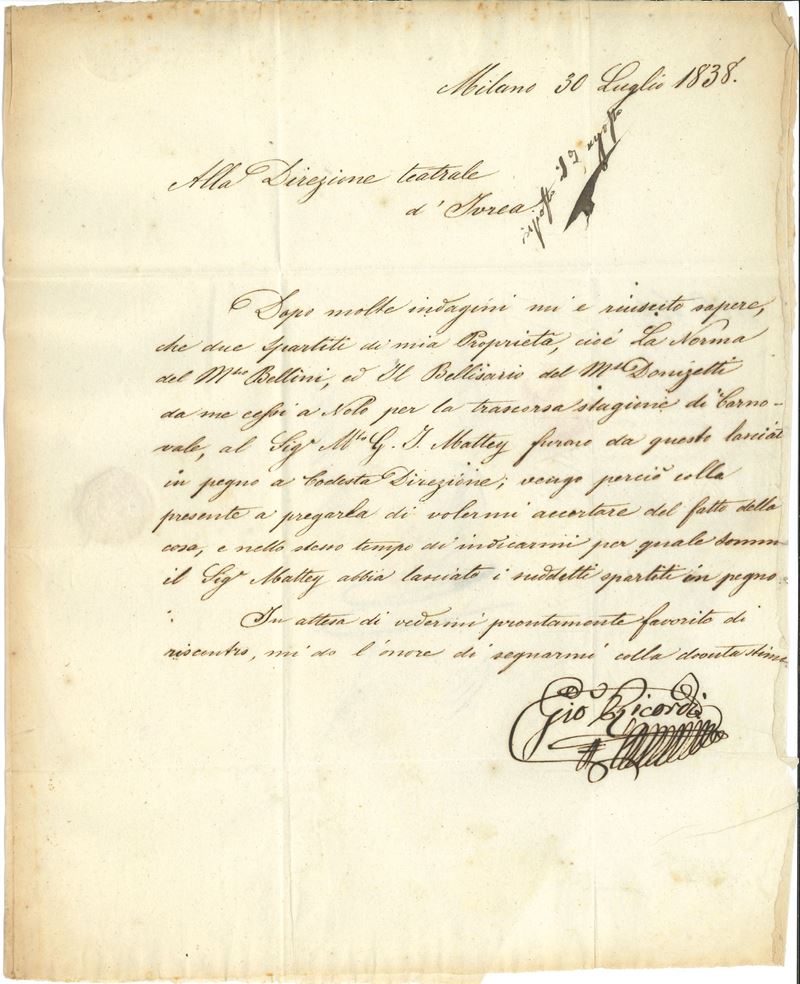 Milano 30 Luglio 1838.
risposto il 2, agosto
Alla Direzione teatrale
d'Ivrea.
Dopo molte indagini mi e riuscito sapere,
che due spartiti di mia Proprietà, cioè La Norma
del Mtro Bellini, ed Il Bellisario del Mtro Donizetti
da me cessi a Nolo per la trascorsa stagione di Carno-
vale, al Sigr Mtro G. J. Mattey furono da questo lasciat
in pegno a Codesta Direzione; vengo perciò colla
presente a pregarla di volermi accertare del fatto della
cosa, e nello stesso tempo di indicarmi per quale somm
il Sigr Mattey abbia lasciato i suddetti spartiti in pegno
In attesa di vedermi prontamente favorito di
riscontro, mi do l'onore di segnarmi colla dovuta stima
Gio Ricordi